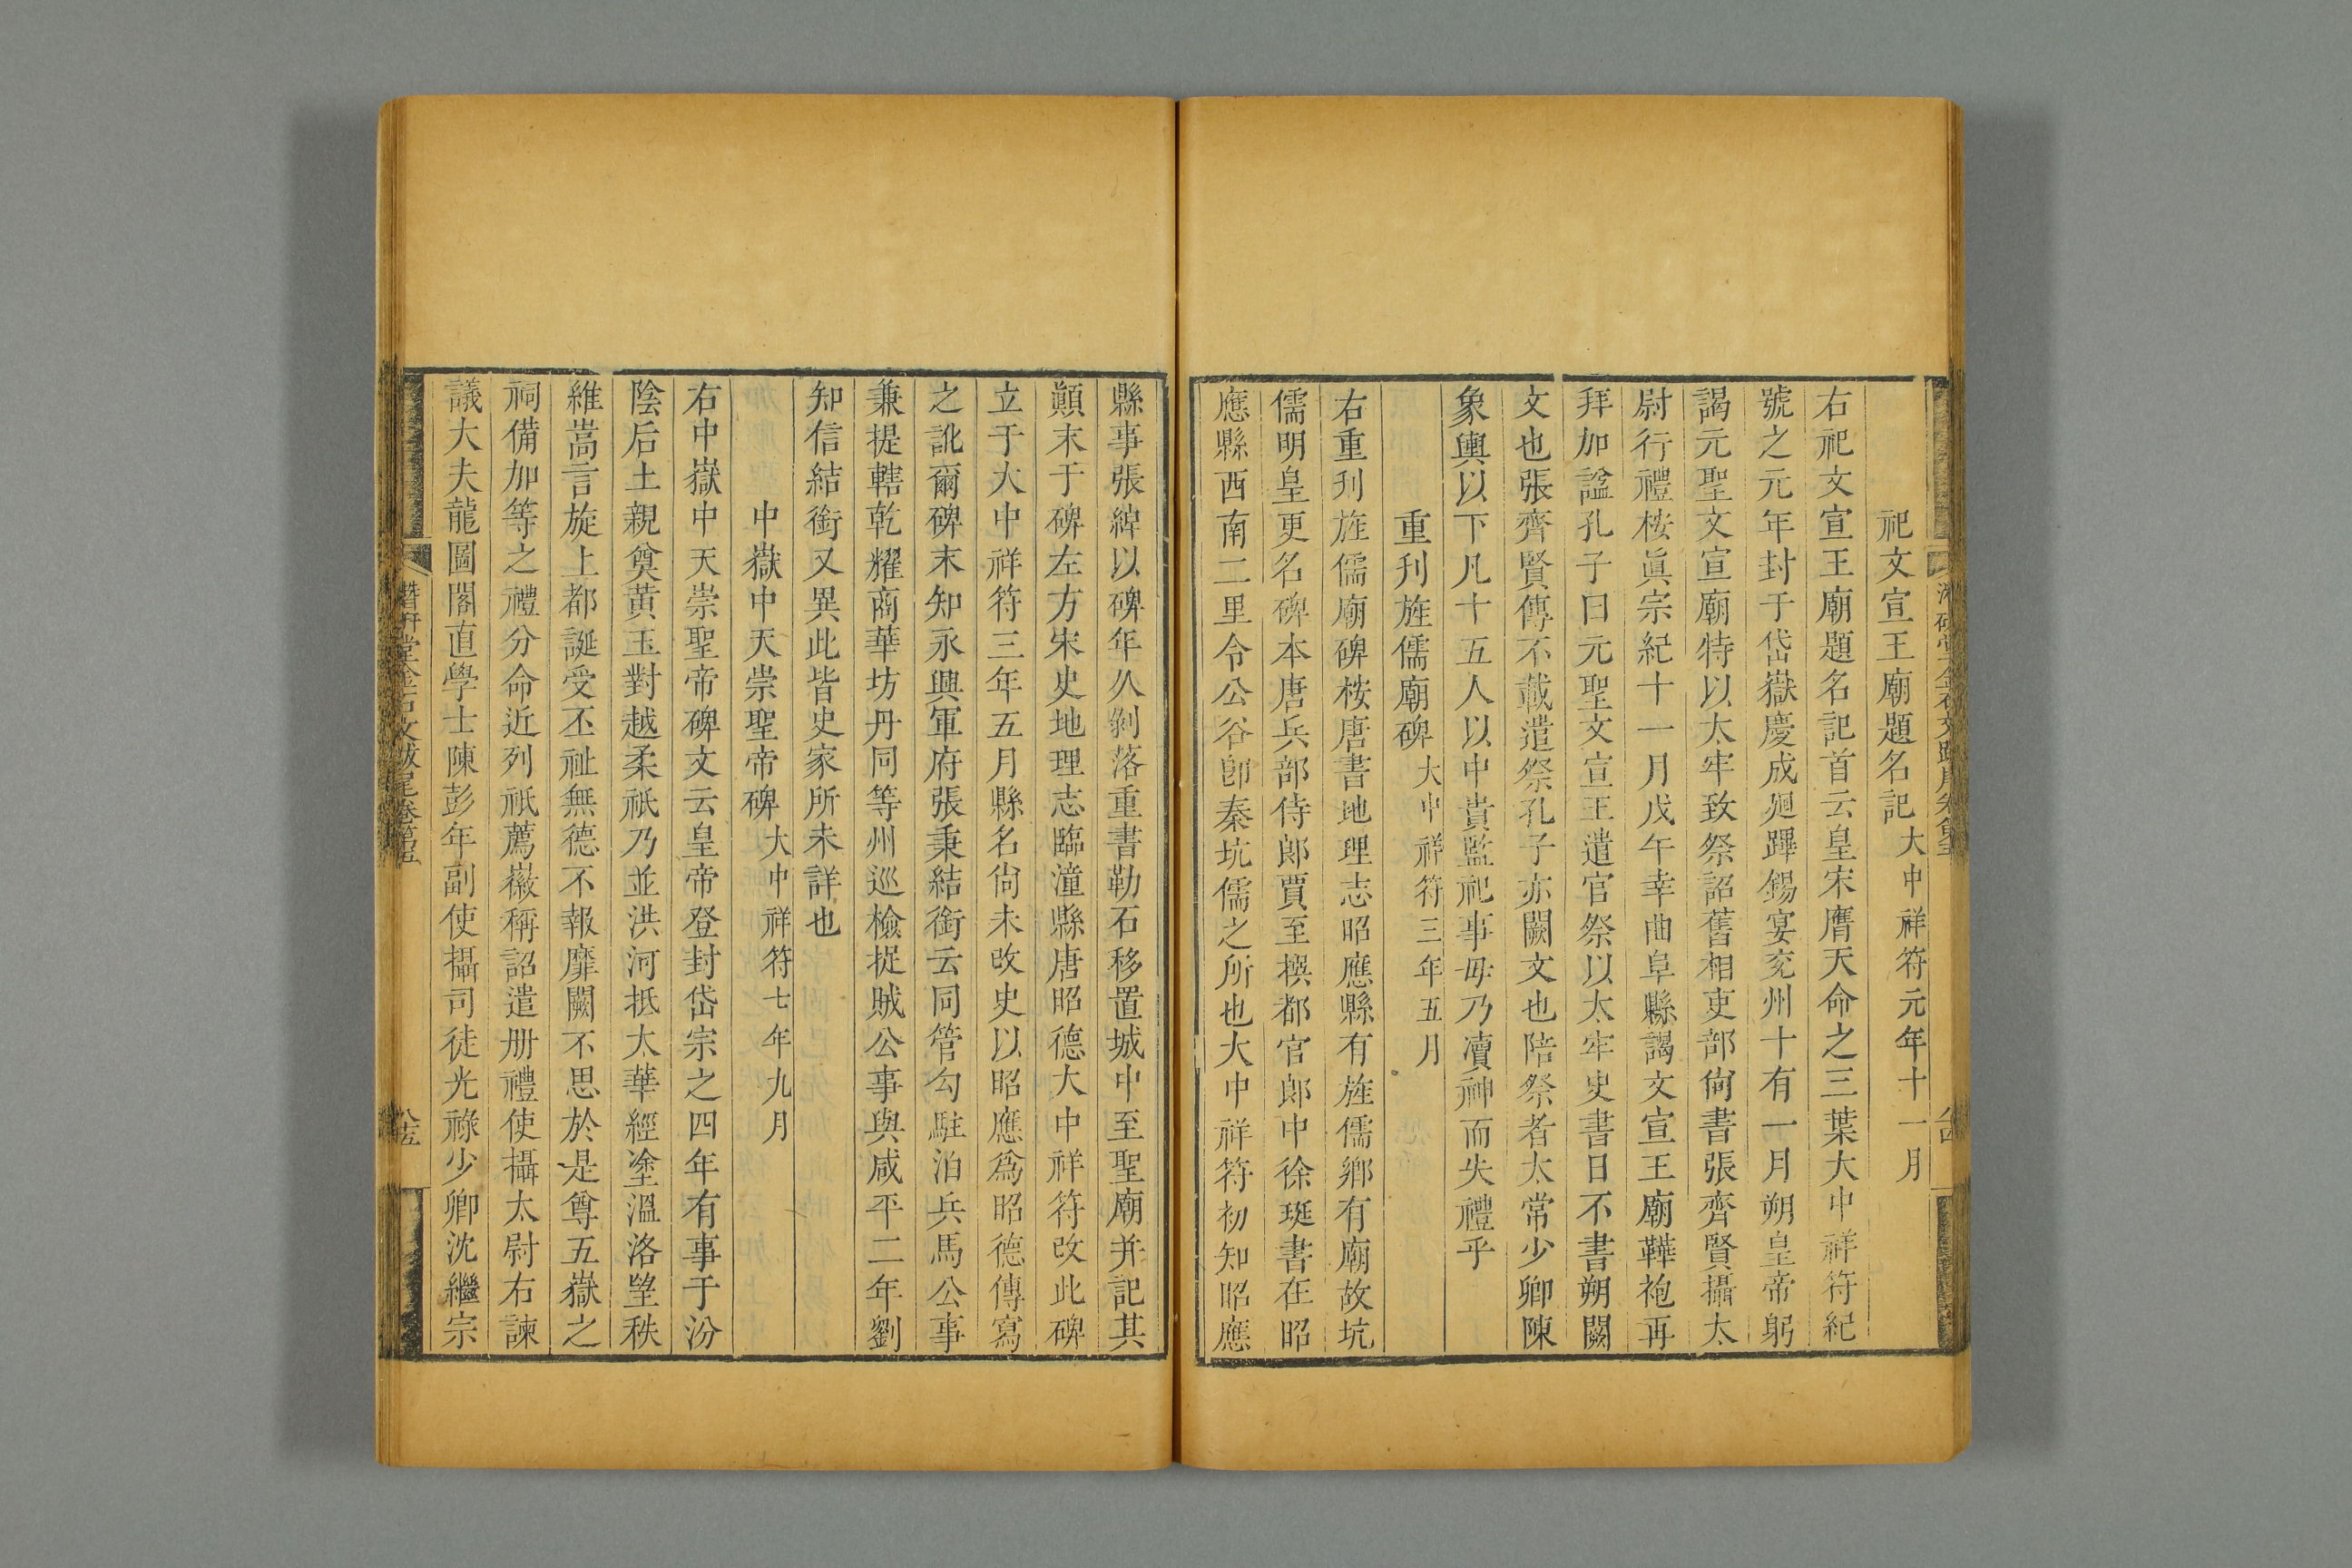 祀文宣王廟題名記大中祥符元年十一月
右祀文宣王廟題名記首云皇宋膺天命之三葉大中祥符紀
號之元年封于岱嶽慶成廻蹕錫宴兖州十有一月朔皇帝躬
謁元聖文宣廟特以太牢致祭詔舊相吏部尙書張齊賢攝太
尉行禮桉眞宗紀十一月戊午幸曲阜縣謁文宣王廟鞾袍再
拜加諡孔子曰元聖文宣王遣官祭以太牢史書日不書朔闕
文也張齊賢傳不載遣祭孔子亦闕文也陪祭者太常少卿陳
象輿以下凡十五人以中貴監祀事毋乃瀆神而失禮乎
重刊旌儒廟碑大中祥符三年五月
右重刊旌儒廟碑桉唐書地理志昭應縣有旌儒鄉有廟故坑
儒明皇更名碑本唐兵部侍郎賈至撰都官郎中徐珽書在昭
應縣西南二里令公谷卽秦坑儒之所也大中祥符初知昭應
縣事張綽以碑年久剝落重書勒石移置城中至聖廟并記其
顚末于碑左方宋史地理志臨潼縣唐昭德大中祥符改此碑
立于大中祥符三年五月縣名尙未改史以昭應爲昭德傳寫
之訛爾碑末知永興軍府張秉結銜云同管勾駐泊兵馬公事
兼提轄乾耀商華坊丹同等州巡檢捉賊公事與咸平二年劉
知信結銜又異此皆史家所未詳也
中嶽中天崇聖帝碑大中祥符七年九月
右中嶽中天崇聖帝碑文云皇帝登封岱宗之四年有事于汾
陰后土親奠黃玉對越柔祇乃並洪河抵太華經塗溫洛望秩
維嵩言旋上都誕受丕祉無德不報靡闕不思於是尊五嶽之
祠備加等之禮分命近列祇薦徽稱詔遣册禮使攝太尉右諫
議大夫龍圖閣直學士陳彭年副使攝司徒光祿少卿沈繼宗
潛研堂金石文跋尾卷第五
八五